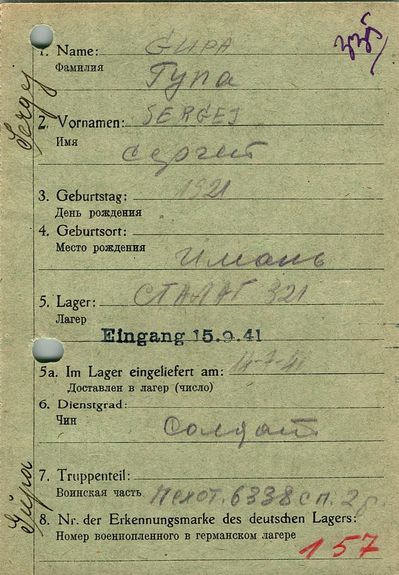 335
1. Name: GUPA
Фамилия Гупа
2. Vornamen: SERGEJ
Имя Сергей
3. Geburtstag: 1921
День рождения
4. Geburtsort:
Место рождения Имань
5. Lager: СТАЛАГ 321
Лагер
Eingang 15.9.41
5a. Im Lager eingeliefert am:
Доставлен в лагер (число)
6. Dienstgrad:
Чин Солдат
7. Truppenteil:
Воинская часть Пехот. 6338 с п. 2
8. Nr. der Erkennungsmarke des deutschen Lagers:
Номер военнопленного в германском лагере 157
Sergej
Gupa